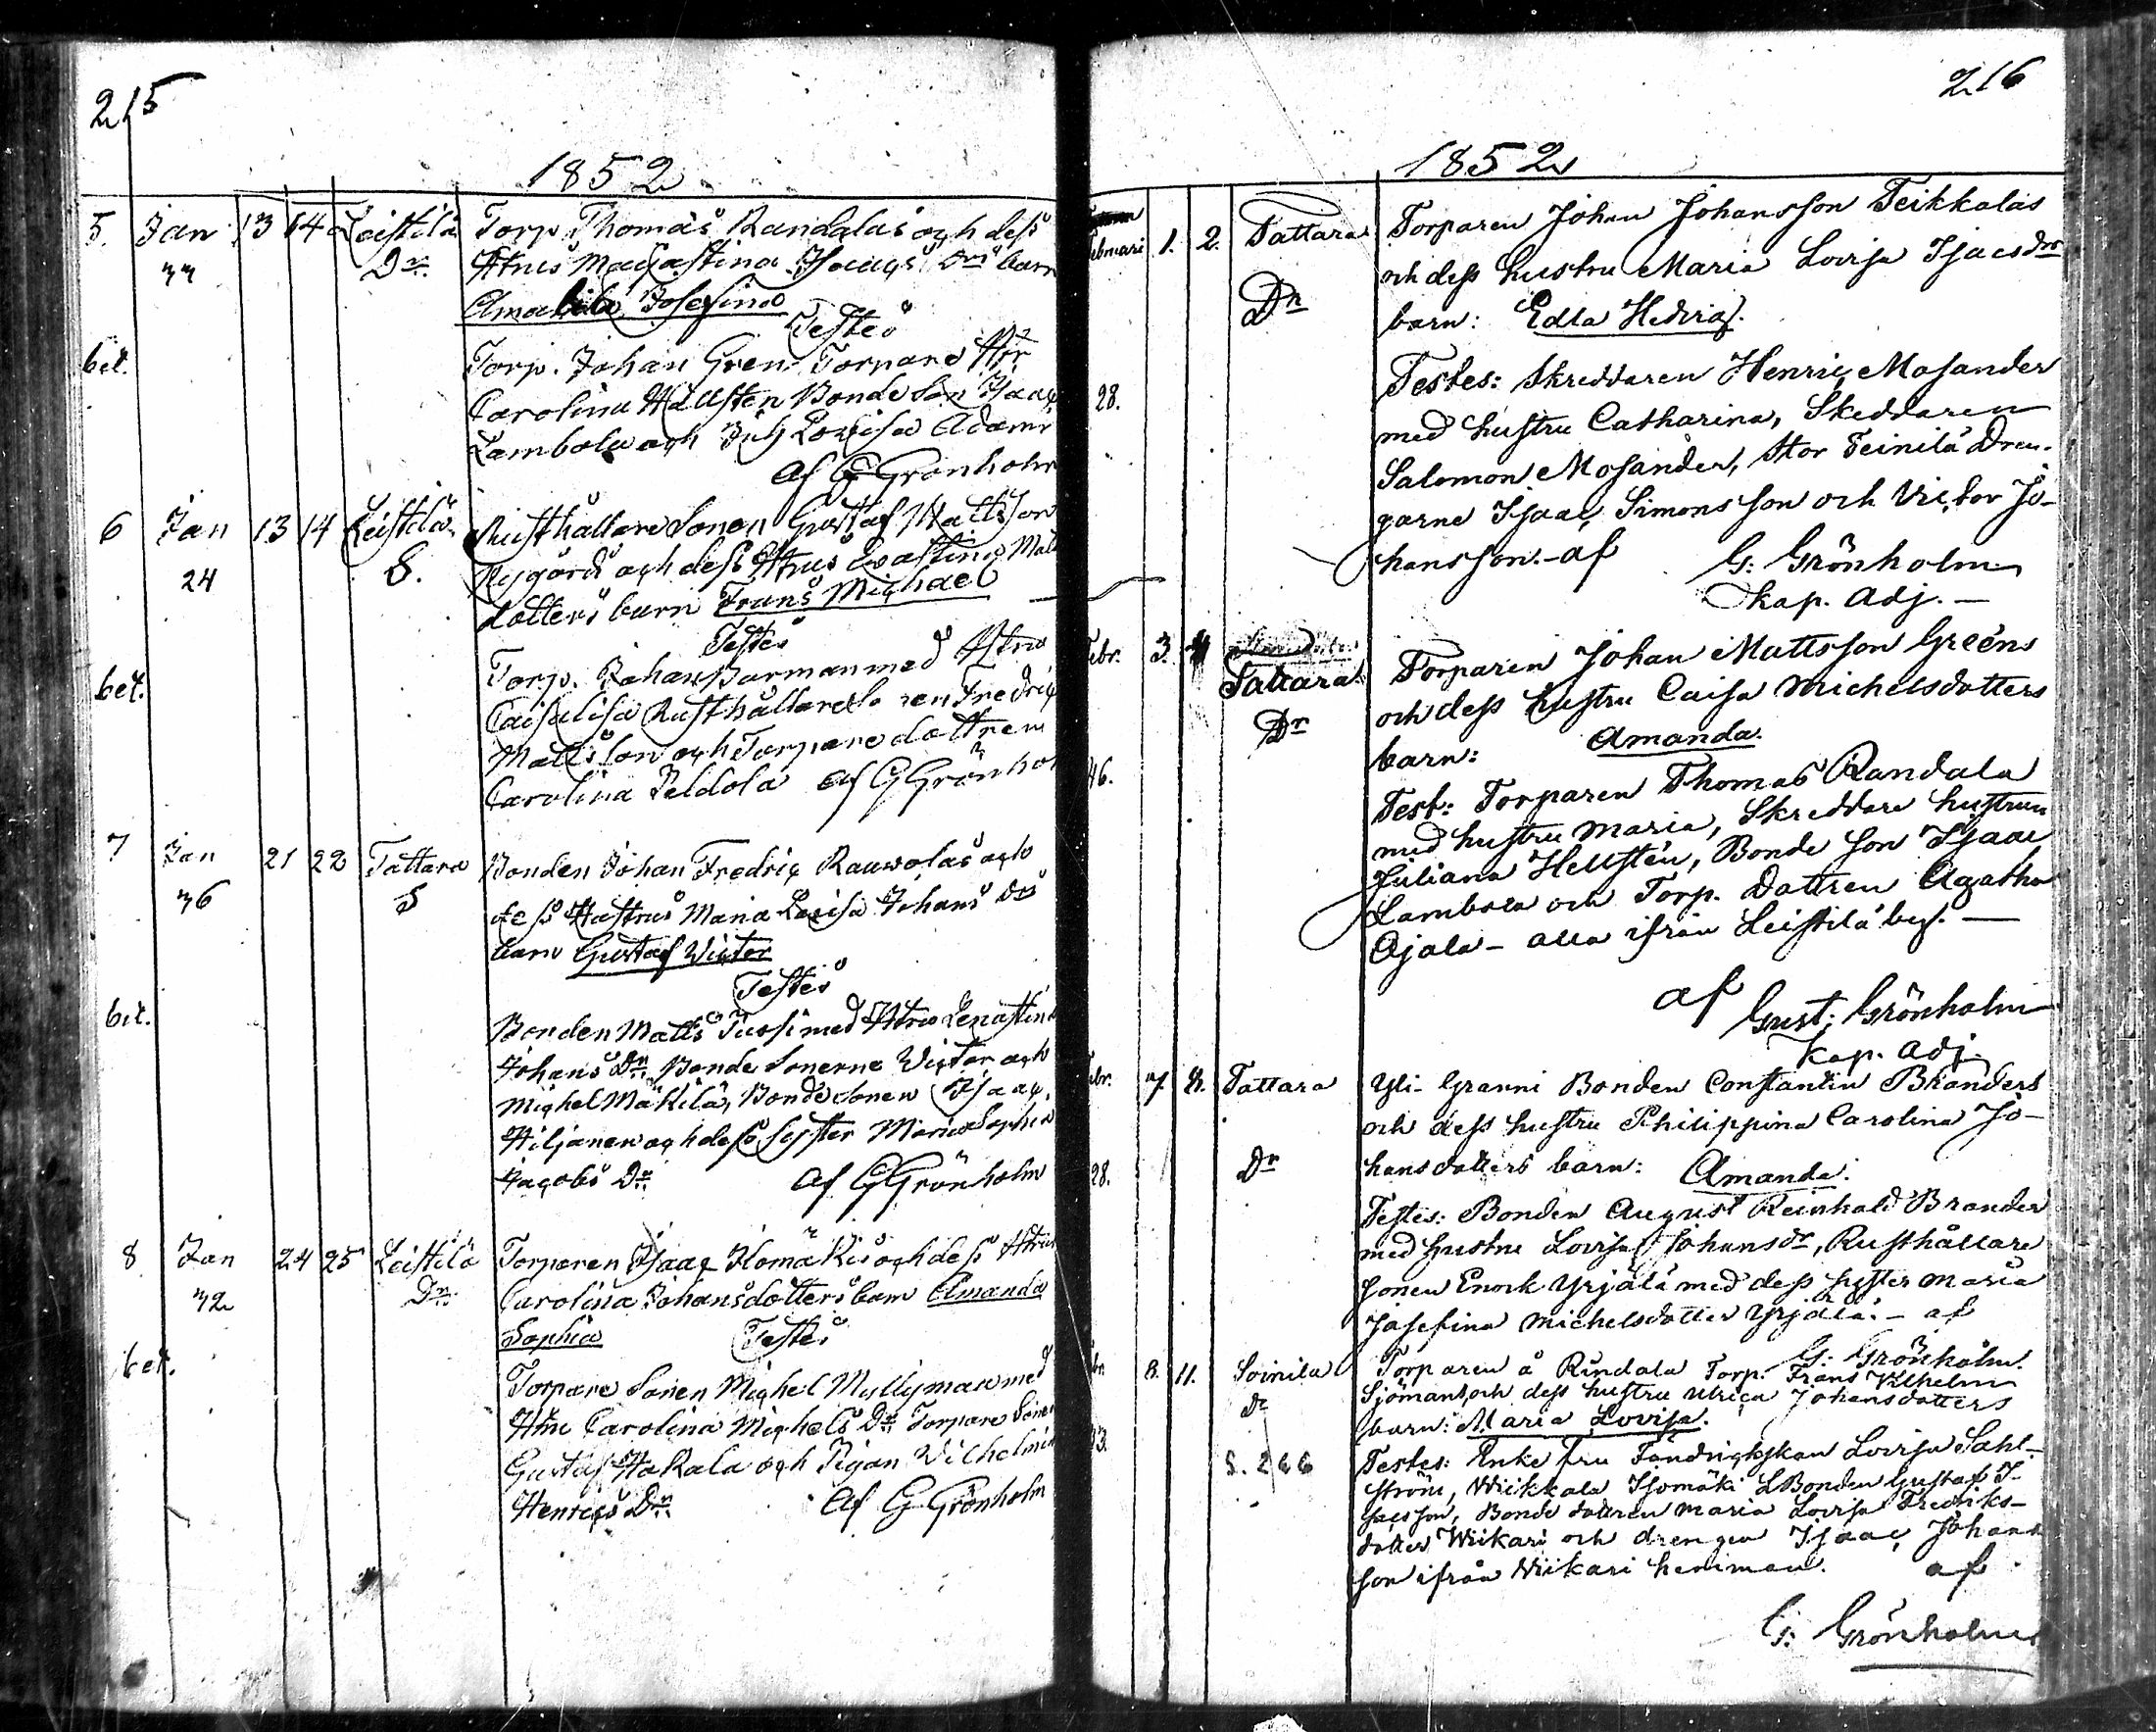 215
1852
5. Jan 13 14 Leistilä Torp. Thomas Randalas och dess
33 Dr. Hrus Maja Stina Isaacs Drs barn
Amalila Josefina
Testes
bet. Torp. Johan Gren Torpare Hr
Carolina Hällsten Bonde Son Isaac
Lambola och Lovisa Adams
af G Grönholm
6 Jan 13 14 Leistilä Rusthållare Sonen Gustaf Mattsson
24 S. Nygårds och dess Hrus Eva Stina Matts
dotters barn Frans Michael
Testes
Torp. Johan Barman med Hstru
bet. Caisa Lisa Rusthållare So nen Fredric
Mattsson och Torpare dottren
Carolina Peldola af G Grönhol
7 Jan 21 22 Tattara Bonden Johan Fredric Rauvolas och
36 S dess Hustrus Maria Lovisa Johans Drs
barn Gustaf Victor
Testes
bet. Bonden Matts Tuosi med Hstru Lena Stina
Johans Dr Bonde Sonerne Victor och
Michel Mäkilä, Bonde Sonen Isaac
Hiljanen och dess Syster Maria Sophia
Jacobs Dr. af G Grönholm
8 Jan 24 25 Leistilä Torparen Isaac Ilomäkis och dess Hrus
32 Dr. Carolina Johansdotters barn Amanda
Sophia Testes
bet. Torpare Sonen Michel Myllyman med
Hru Carolina Michels Dr Torpare Sonen
Gustaf Hakala och Pigan Wilhelmin
Henrics Dr. af G Grönholm
216
1852
Februari 1. 2. Tattara Torparen Johan Johansson Teikkalas
och dess hustru Maria Lovisa Isacsdrs
Dr barn: Edla Hedvig.
Testes: Skreddaren Henric Mosander
28. med hustru Catharina, Skeddaren
Salomon Mosander, Stor Teinilä Dren-
garne Isaac Simonsson och Victor Jo-
hansson.-af G. Grönholm
kap. adj. —
Febr. 3. 4 Tattara Torparen Johan Mattsson Greéns
och dess hustru Caisa Michelsdotters
Dr barn: Amanda.
46. Test: Torparen Thomas Randala
med hustru Maria, Skreddare hustrun
Juliana Hellstén, Bonde son Isaac
Lambola och Torp. Dottren Agatha
Ajala - alla ifrån Leistilä by. —
af Gust. Grönholm
kap. adj.
Febr. 7. 8. Tattara Yli- Granni Bonden Constantin Branders
och dess hustru Philippina Carolina Jo-
28. Dr hansdotters barn: Amanda.
Testes: Bonden August Reinhold Brander
med hustru Lovisa Johansdr, Rusthållare
sonen Enock Yrjälä med dess syster Maria
Josefina Michelsdotter Yrjälä. - af
G. Grönholm.
br. 8. 11. Soinila Torparen å Rindala Torp. Frans Vilhelm
Dr Sjömans, och dess hustru Ulrica Johansdotters
barn: Maria Lovisa.
33. S. 266 Testes: Enke fru Fendrickskan Lovisa Sahl-
ström, Wiikkala Isomäki LBonden Gustaf I-
sacsson, Bonde dottren Maria Lovisa Fredriks-
dotter Wiikari och drengen Isaac Johans
son ifrån Wiikari hemman. af
G. Grönholm